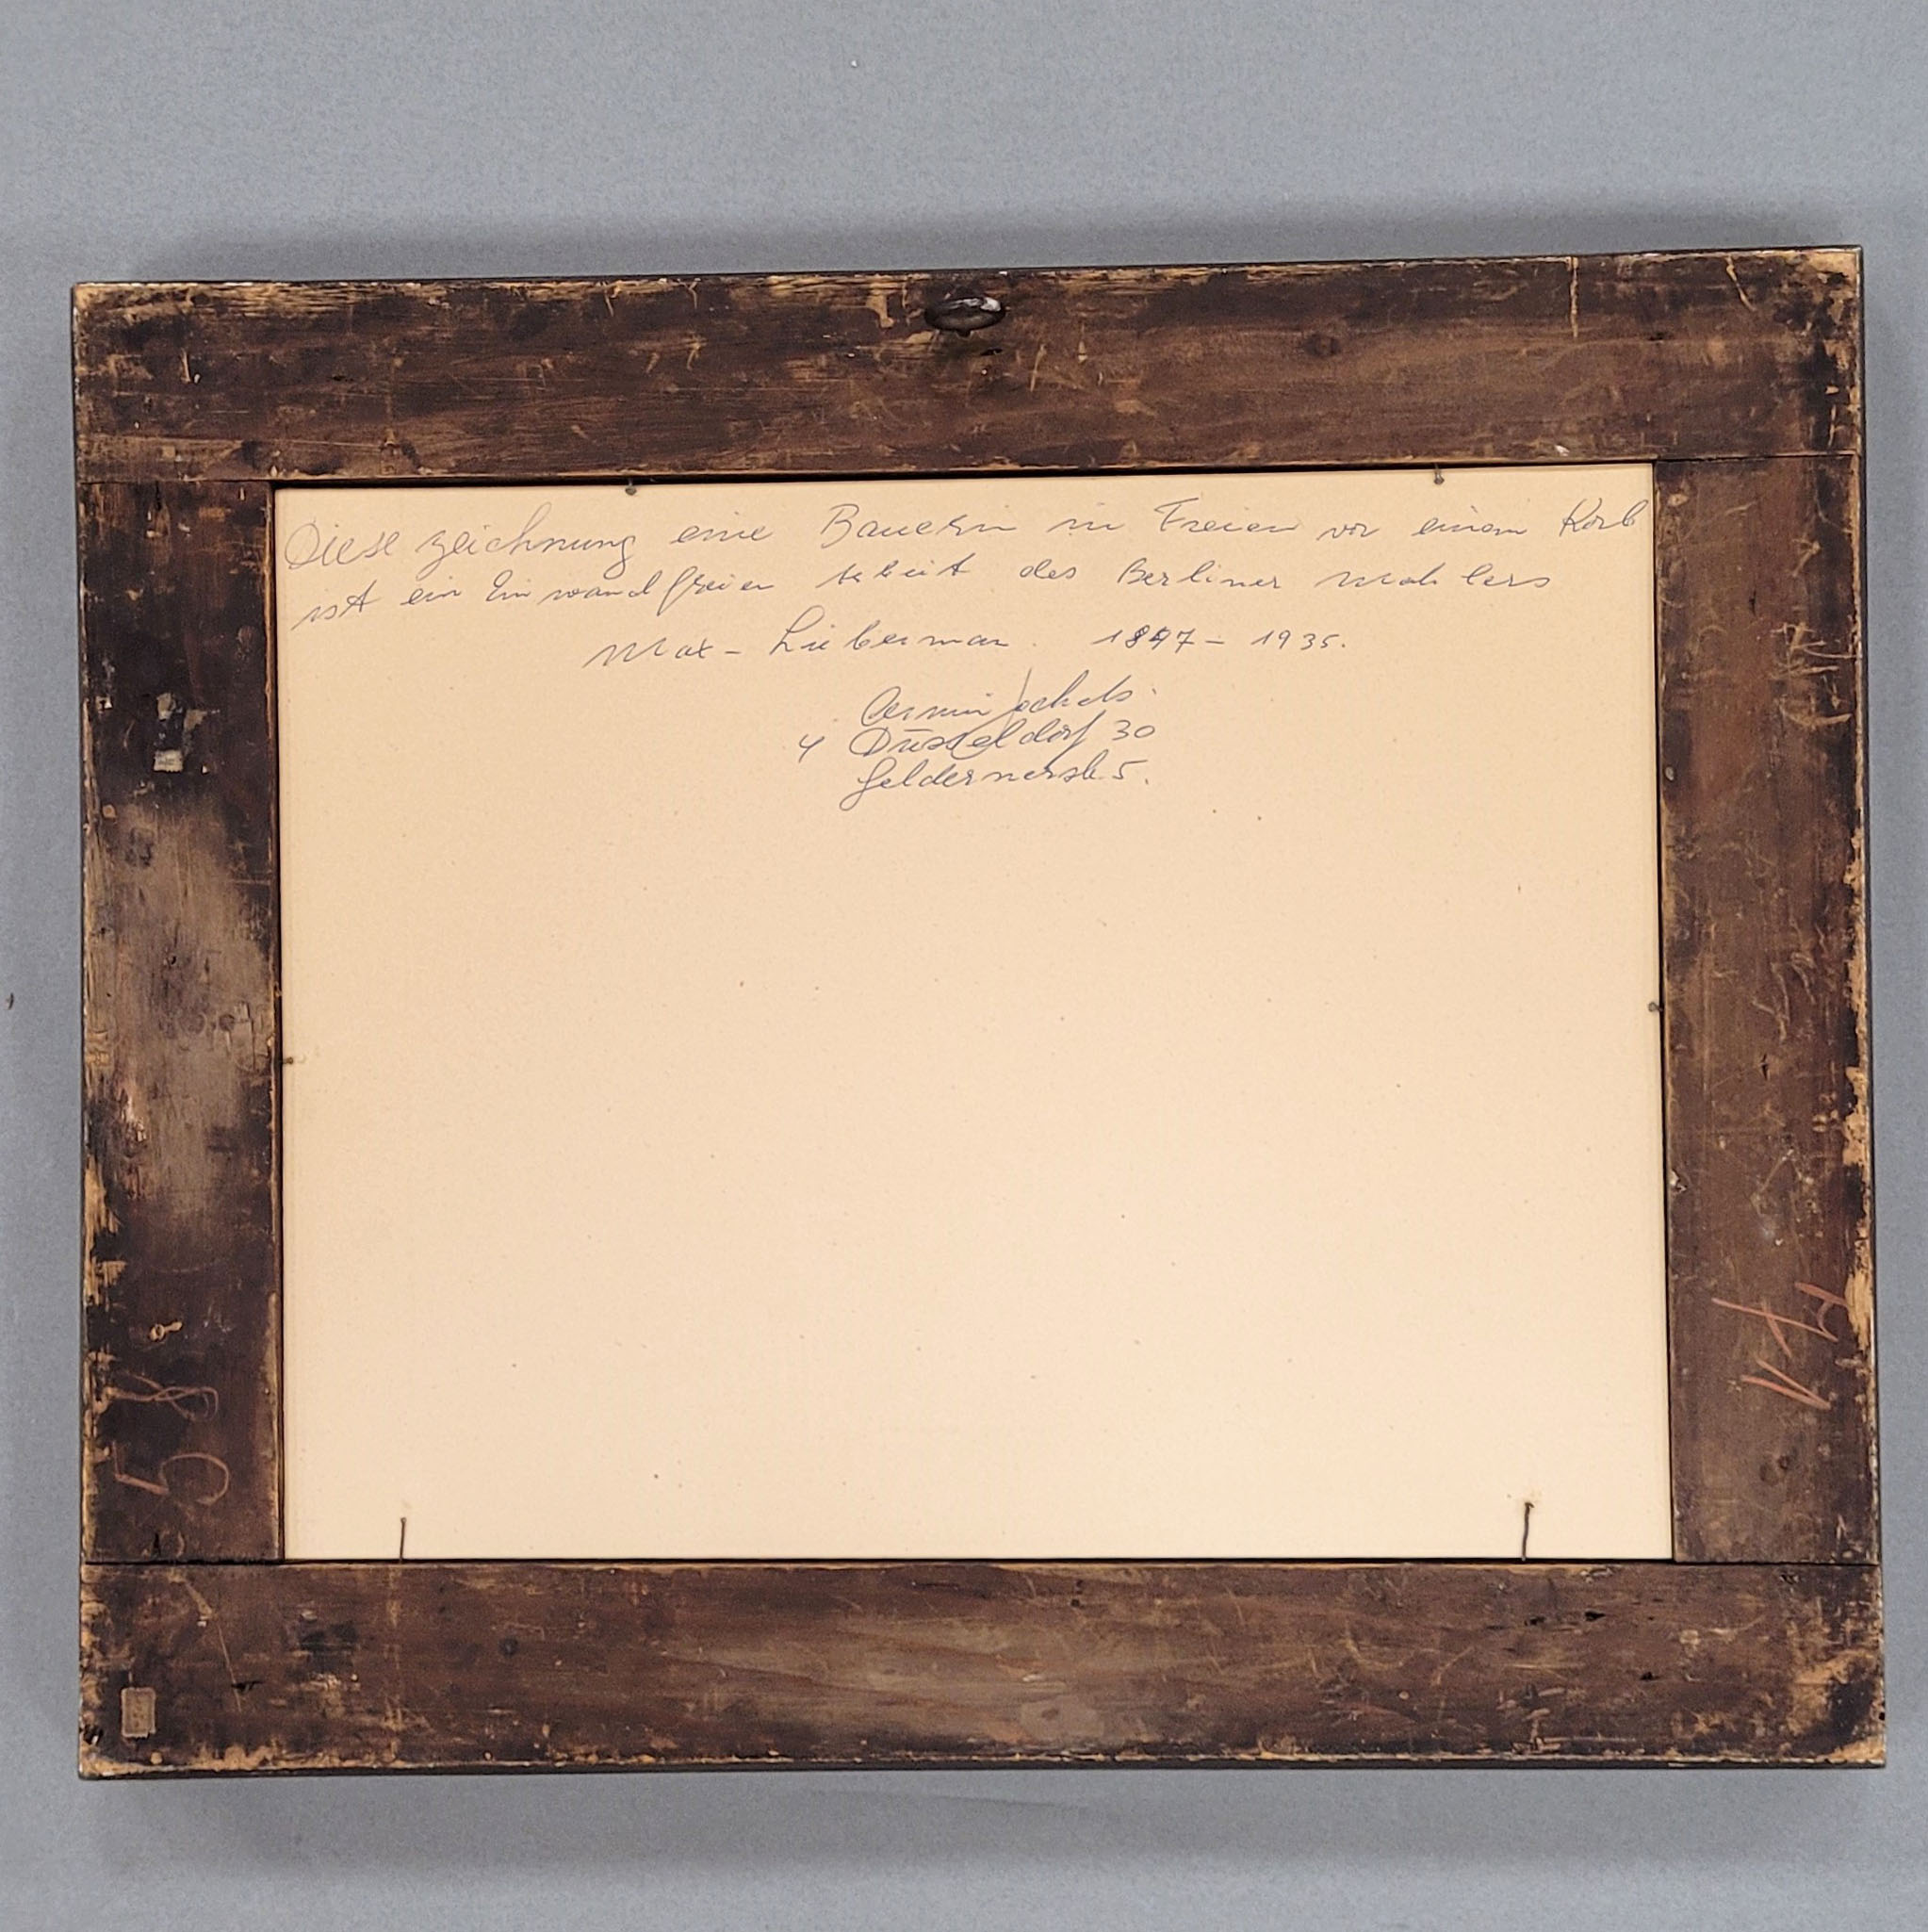 Diese zeichnung eine Bauerin im Freien vor einem Korb
ist ein Einwandfreien Arbeit des Berliner Mahlers
Max - Lieberman. 1847 - 1935.
Armin Jochels.
4 Düsseldorf 30
Geldernerstr. 5.
58